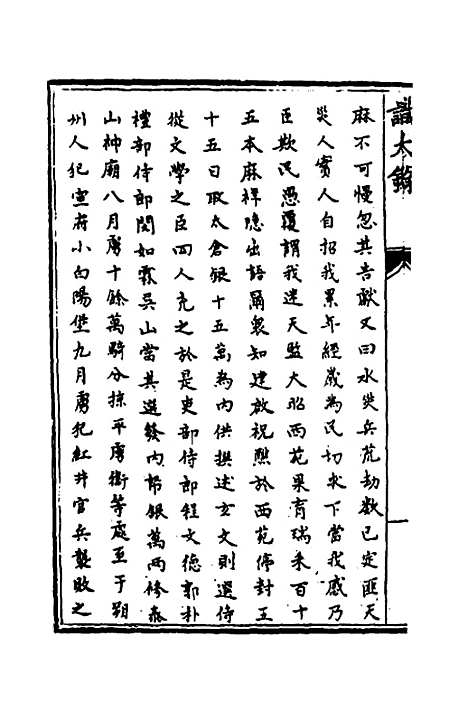 麻不可慢忽其告獻又曰水災兵荒劫數已定匪天
災人實人自招我累年經歲為民切求下當我感乃
臣欺民愚覆謂我迷天監大昭西苑果育瑞禾百十
五本麻祥隱出語爾眾知建啟祝熙於西苑停封王
十五日取太倉銀十五萬為內供撰述玄文則選侍
從文學之臣四人充之於是吏部侍郎程文德郭朴
禮部侍郎閔如霖吳山當其選發內帑銀萬兩修泰
山神廟八月虜十餘萬騎分掠平虜衛等處至于朔
州人犯宣府小白陽堡九月虜犯紅井官兵襲敗之
大
一